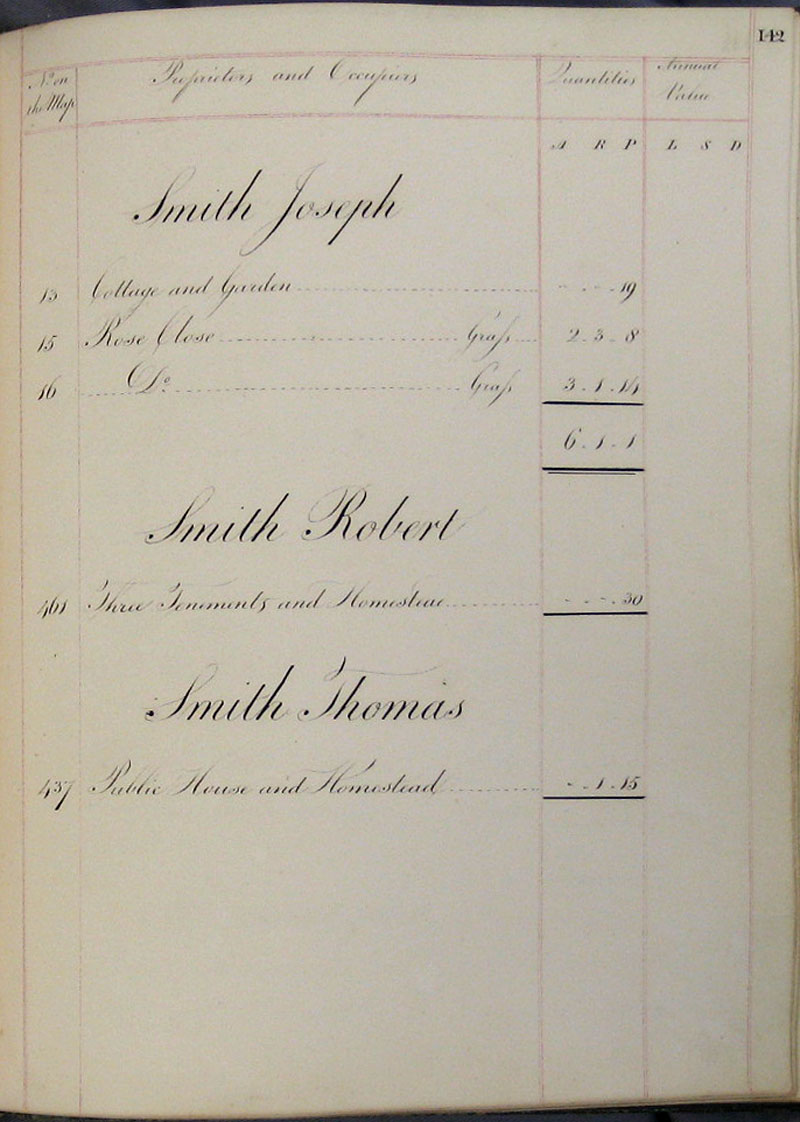 142
No on the Map Proprietors and Occupiers Quantities Annual Value
A R P L S D
Smith Joseph
13 Cottage and Garden - - - 19
15 Rose Close Grass 2 - 3 - 8
16 Do Grass 3 - 1 - 14
6 - 1 - 1
Smith Robert
461 Three Tenements and Homestead - - - 30
Smith Thomas
437 Public House and Homestead - - 1 - 15